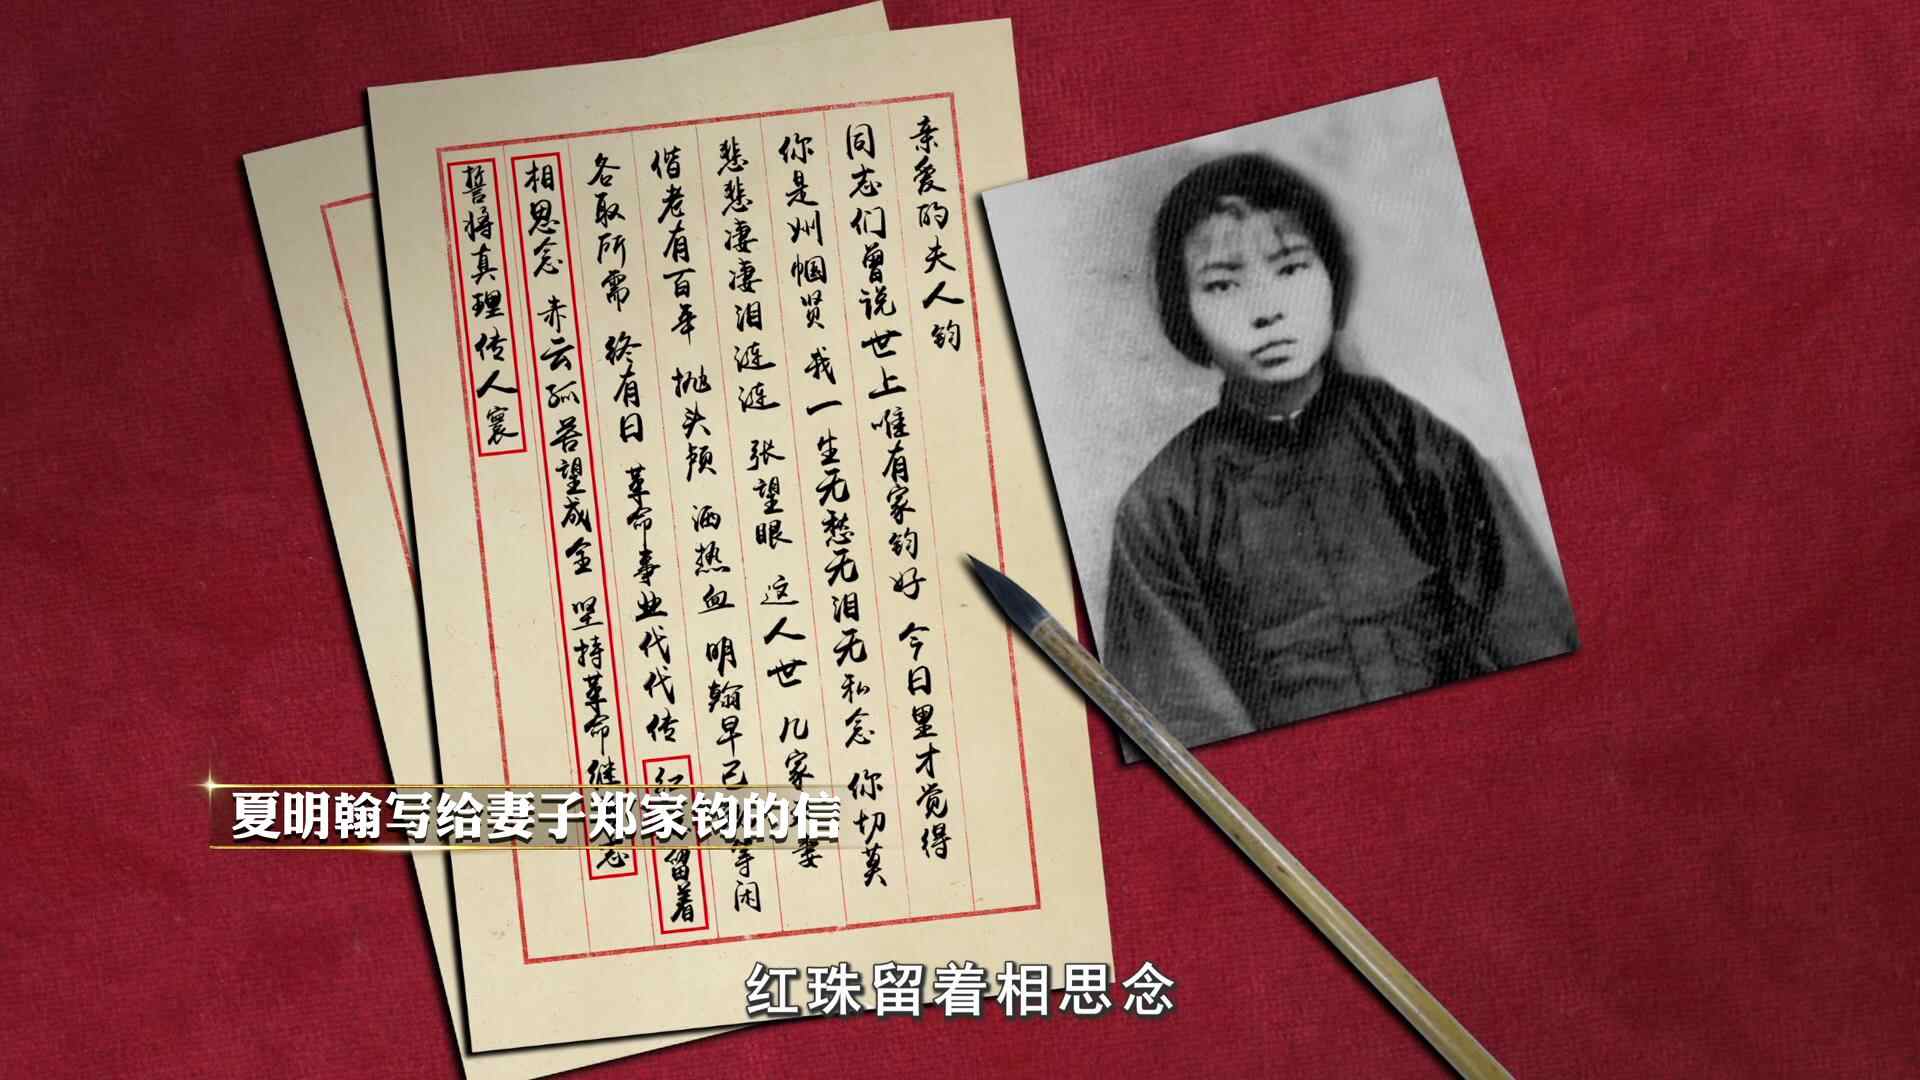 亲爱的夫人钧
同志们曾说世上唯有家钧好 今日里才觉得
你是州帼贤 我一生无愁无泪无私念 你切莫
悲悲凄凄泪涟涟 张望眼 这人世 几家 妻
偕老有百年 抛头颅 洒热血 明翰早已 等闲
各取所需 终有日 革命事业代代传 红 留着
相思念 赤云孤苦望成全 坚持革命继 志
誓将真理传人寰
夏明翰写给妻子郑家钧的信
红珠留着相思念